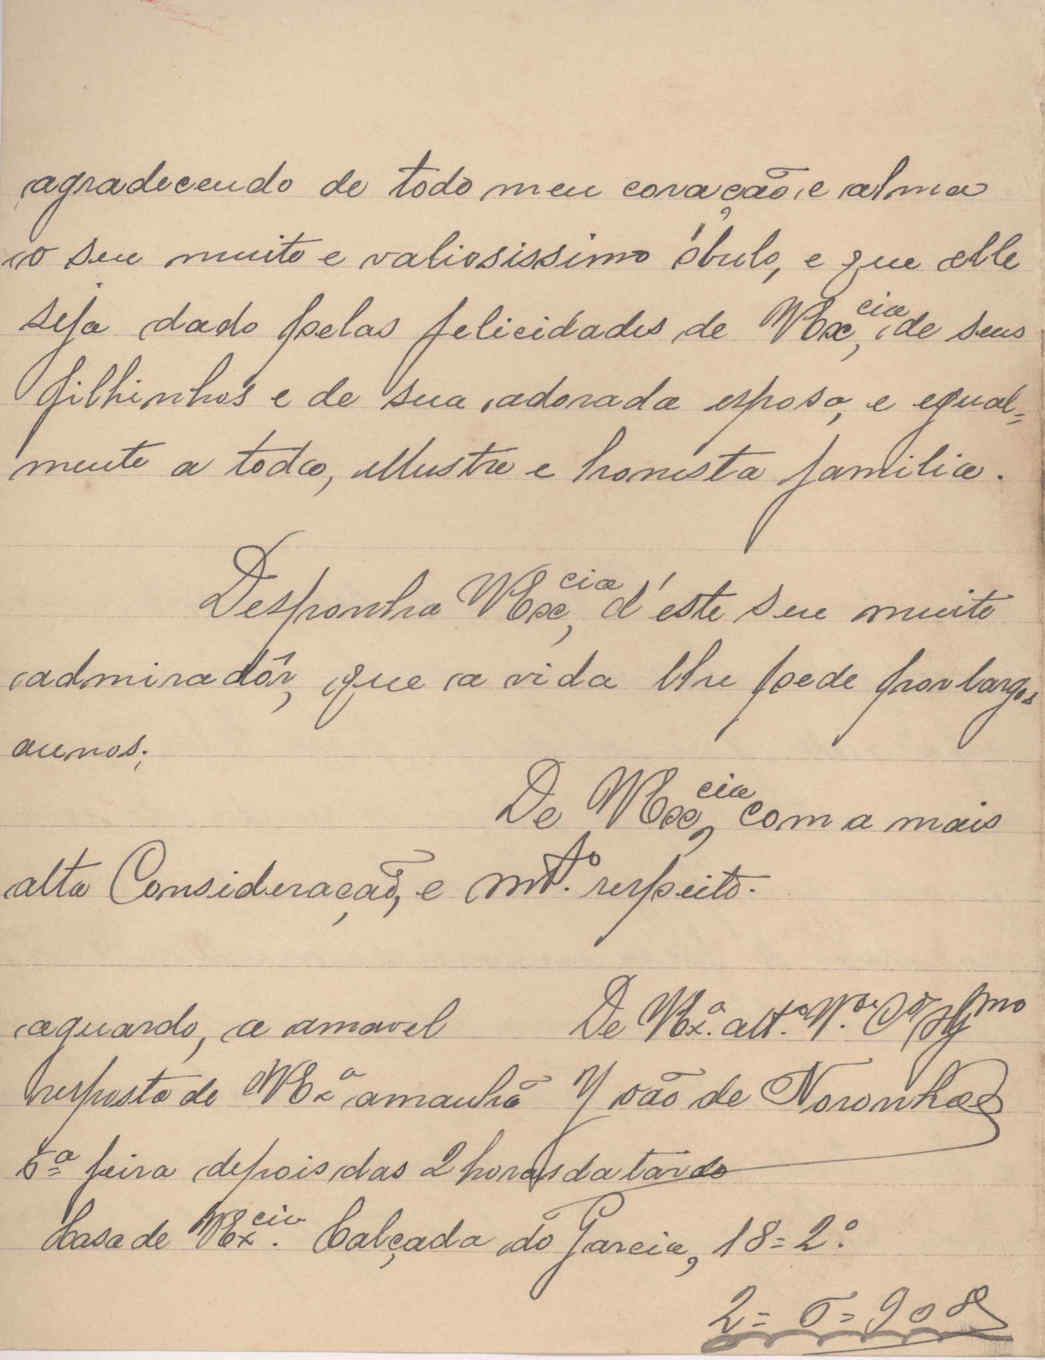 agradecendo de todo meu coração, e alma
o seu muito e valiosissimo óbulo, e que elle
seja dado pelas felicidades de VExcia, de seus
filhinhos e de sua adorada esposa, e egual=
mente a toda, illustre e honesta familia.
Desponha VExcia, d'este seu muito
admiradôr, que a vida lhe pede por largos
annos;
De VExcia, com a mais
alta Consideração, e mt.º respeito.
aguardo, a amavel
De VEx.ª att.º V.or
resposta de VEx.ª amanhã
João de Noronha
6ª feira depois das 2 horas da tarde
Casa de VExcia. Calçada do Garcia, 18=2.º
2=5=908